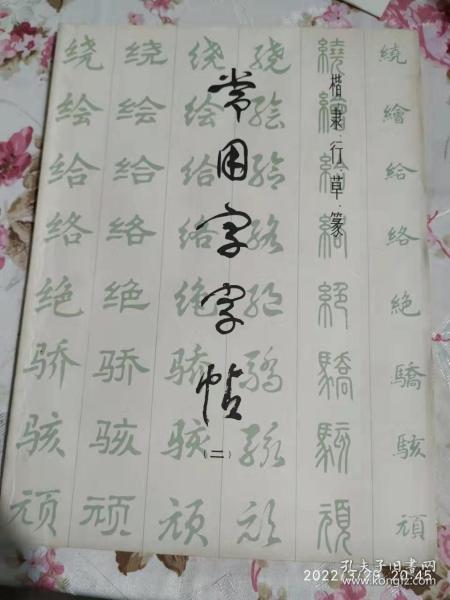 常用字字帖
(二)
楷·隶·行·草·篆
绕 绕 绕 绕 繞 繞
绘 绘 绘 绘 繪 繪
给 给 给 给 給 給
络 络 络 络 絡 絡
绝 绝 绝 绝 絕 絶
骄 骄 骄 骄 驕 驕
骇 骇 骇 骇 駭 駭
顽 顽 顽 顽 頑 頑
孔夫子旧书网
2022/3/26 20:45
www.kongfz.com